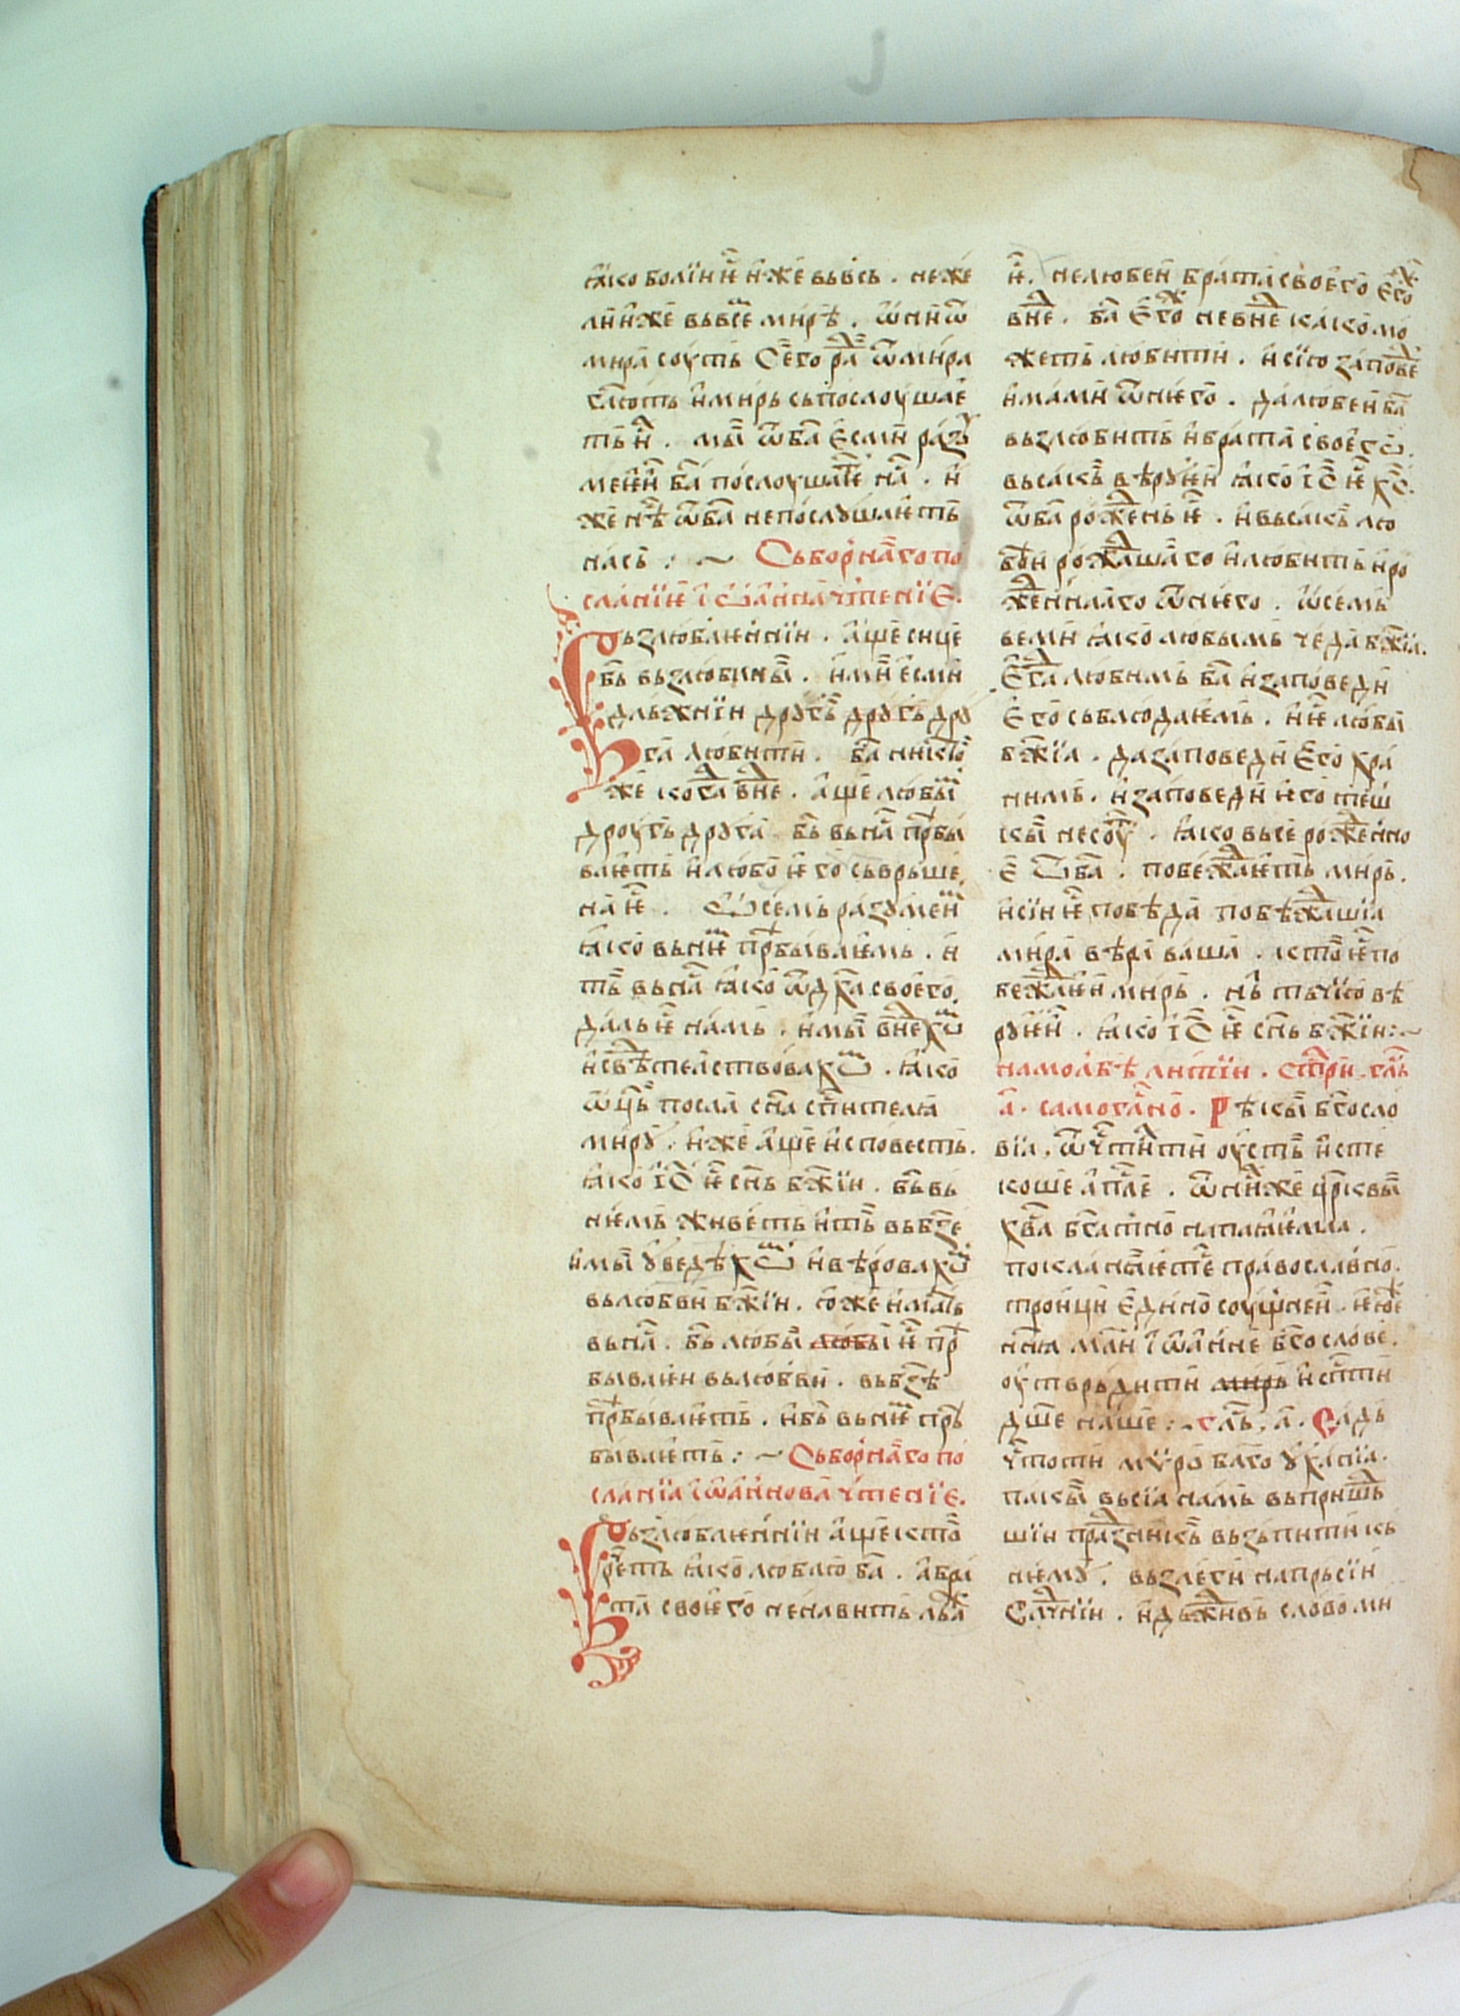 ꙗко болїи ѥⷭ҇ иже вь вⷭ҇ь . неже
ли иже вь всеⷨ мирѣ . ѿ ни ѿ
мира соуть Сего раⷣ ѿ мира
гл҃ють и мирь сь послоушає
ть иⷯ . мы ѿ ба҃ есми разꙋ
мѥѥи ба҃ послоушаѥⷮ наⷭ . и
же нѣⷭ ѿ ба҃ не послꙋшаѥть
нась : ~ Сьборнаго по
сланїѥ їѡанна чтенїе .
Вьзлюблѥннїи . аще сице
бь҃ вьзлюби ны . и мы есми
дльжнїи дрꙋгь дрꙋгь дрꙋ
га любити . ба҃ никто
же когда виⷣе . аще любыⷨ
дроугь дрꙋга бь҃ вь наⷭ прⷣбы
ваѥть и любо ѥго сьврьше
на ѥⷭ . Ѡ семь разꙋмеѥⷨ
ꙗко вь нѥⷨ прⷣбываѥмь . и
ть вь наⷭ ꙗко ѿ дх҃а своего
даль ѥⷭ намь . и мы виⷣехѡⷨ
и свⷣѣтелствовахѡⷨ . ꙗко
ѿц҃ь посла сн҃а сп҃ителꙗ
мирꙋ . иже аще исповесть .
ꙗко їс҃ ѥⷭ сн҃ь бж҃їи . бь҃ вь
нѥмь живеть и ть вь бз҃е
и мы ꙋведѣхѡⷨ и вѣровахѡⷨ
вь любви бж҃їи . юже имать
вь наⷭ . бь҃ любы любы ѥⷭ прⷣ
бываѥи вь любви . вь бз҃ѣ
прⷣбываѥть . и бь҃ вь нѥⷨ прⷣѣ
бываѥть : ~ Сьборнаго по
сланїа їѡаннова чтенїе .
Вьзлюблѥннїи аще кто
речеть ꙗко люблю ба҃ . а бра
та своѥго ненавить льжⷣа
ѥⷭ . не любеи брата своего егоⷤ
виⷣе . ба҃ егоⷤ не виⷣе како мо
жеть любити . и сїю заповеⷣ
имами ѿ нѥго . да любеи ба҃
вьзлюбить и брата своего .
вьсакь вѣрꙋѥи ꙗко їс҃ ѥⷭ хс҃ .
ѿ ба҃ рожⷣень ѥⷭ . и вьсакь лю
беи рожⷣьшаго и любить и ро
жⷣеннаго ѿ нѥго . ѡ семь
вемы ꙗко любымь чеда бж҃їа .
Егдⷣа любимь ба҃ и заповеди
его сьблюдаѥмь . и ѥⷭ любы
бж҃їа . да заповеди его хра
нимь . и заповеди ѥго теш
кы не соуⷮ . ꙗко вьсе рожⷣенно
е ѿ ба҃ . побежⷣаѥть мирь .
и сїи ѥⷭ побѣда побѣжⷣьшїа
мира вѣра ваша . кто ѥⷭ по
бежⷣаѥи мирь . нь тьчїю вѣ
рꙋѥи . ꙗко їс҃ ѥⷭ сн҃ь бж҃їи : ~
на молбѣ литїи . стⷯри . глⷭ҇ь
а҃ . самогл҃но . Рѣкы бг҃осло
вїа , ѿ чⷭтⷣити оусть исте
коше апⷭ҇ле . ѿ нихⷤже цр҃квы
хв҃а бг҃атно напаꙗѥма .
покланꙗѥть православно .
троици едино соущнеи . ѥюже
ннꙗ моли їѡанне бг҃ослове .
оутврьдити мирь и сп҃ти
дш҃е наше : ~ глⷭ҇ь . а҃ . Садь
чⷭ҇тоти мѵро благо ꙋханїа .
пакы вьсїа намь вь пришьⷣ
шїи празⷣникь вьзьпити кь
нѥмꙋ . вьзлеги на прьсїи
Влⷣчнїи . и дьжⷣивь слово ми